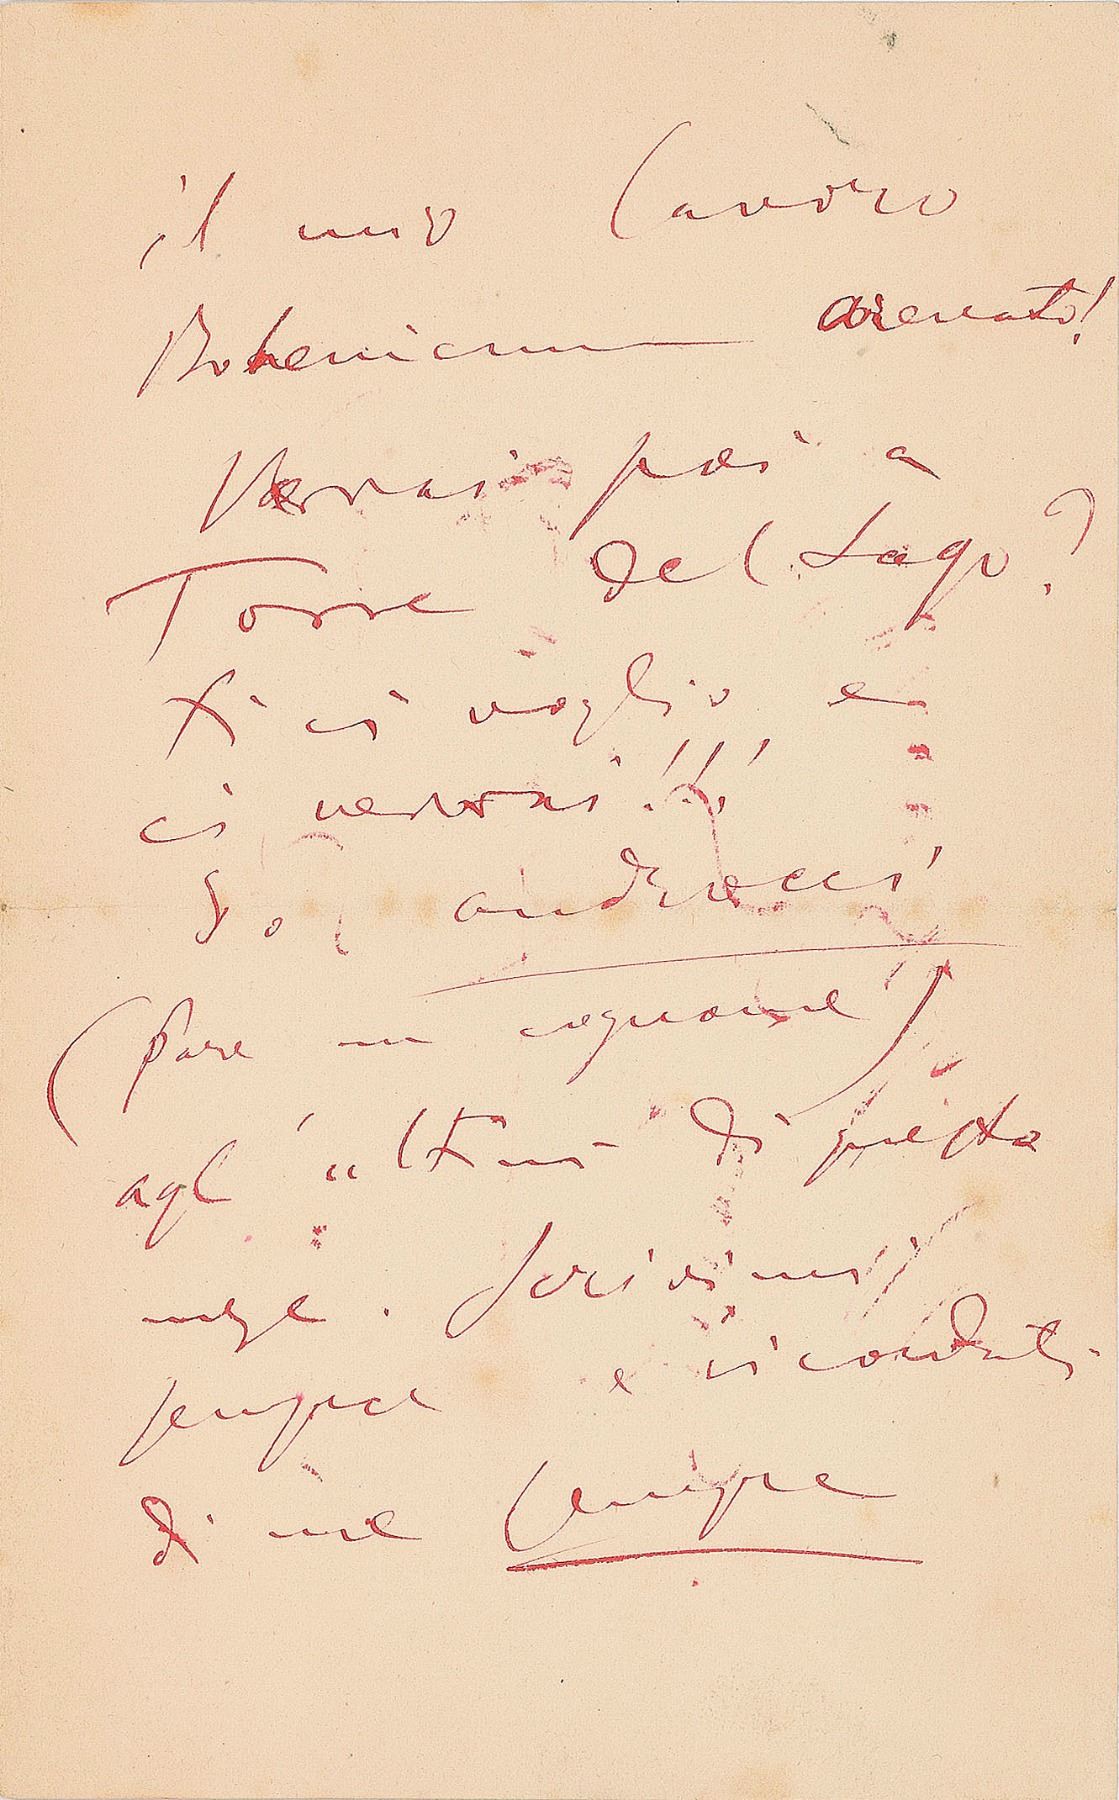 il mio lavoro
Bohemien arenato!
Verrai poi a
Torre del Lago?
Ti ci voglio e
ci verrai!!!
Io ci androcci
(pare un cognome!)
agl'ultimi di questo
mese. Scrivimi
sempre e ricordati
di me sempre